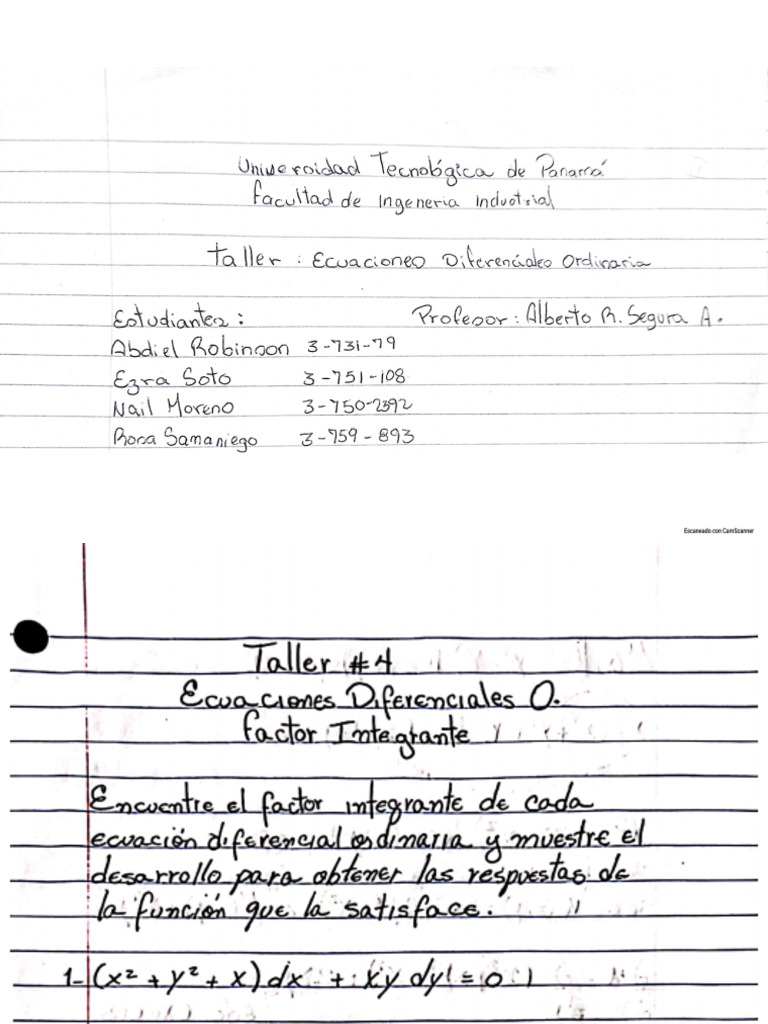 Universidad Tecnológica de Panamá
Facultad de Ingeneria Industrial
Taller : Ecuaciones Diferenciales Ordinaria
Estudiantes : Profesor : Alberto R. Segura A.
Abdiel Robinson 3-731-79
Ezra Soto 3-751-108
Nail Moreno 3-750-2392
Rosa Samaniego 3-759-893
Escaneado con CamScanner
Taller #4
Ecuaciones Diferenciales O.
Factor Integrante
Encuentre el factor integrante de cada
ecuación diferencial ordinaria y muestre el
desarrollo para obtener las respuestas de
la función que la satisface.
1- (x² + y² + x) dx + xy dy = 0